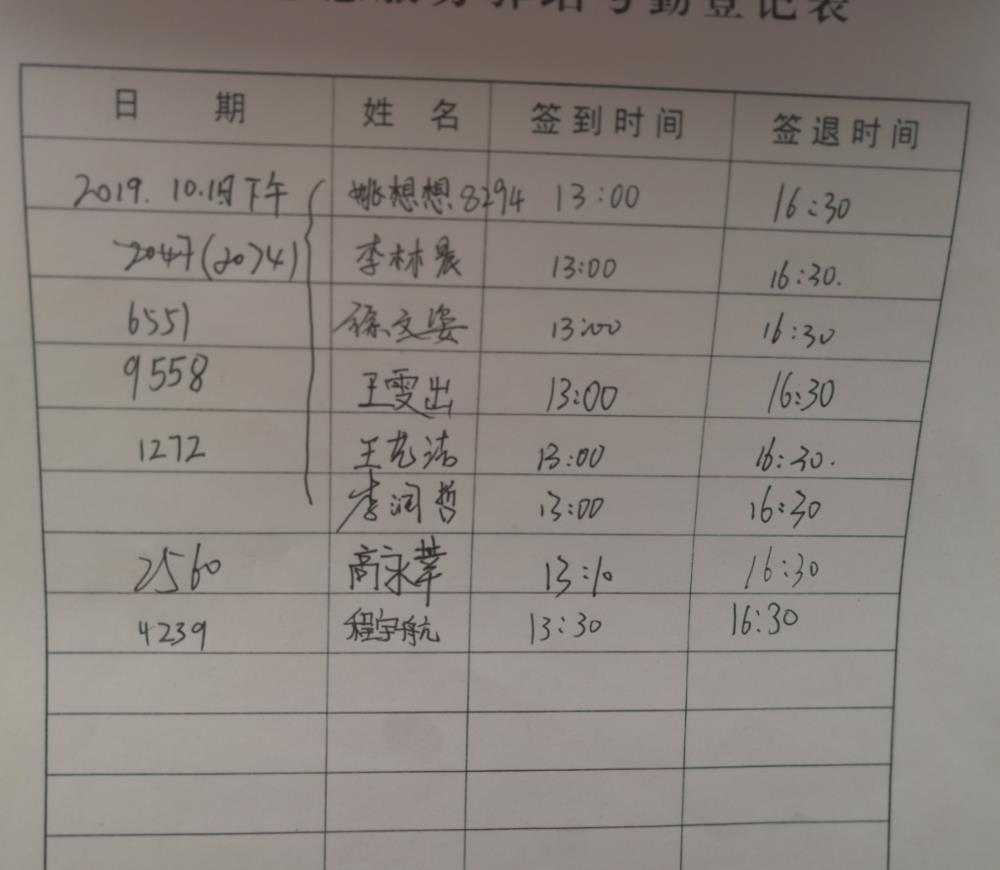 考勤登记表
日期 姓名 签到时间 签退时间
2019. 10.1日下午 姚想想8294 13:00 16:30
2047(2074) 李林晨 13:00 16:30.
6551 徐文姿 13:00 16:30
9558 王雯出 13:00 16:30
1272 王艺洁 13:00 16:30.
李润哲 13:00 16:30
2560 高永苹 13:10 16:30
4239 程宇航 13:30 16:30